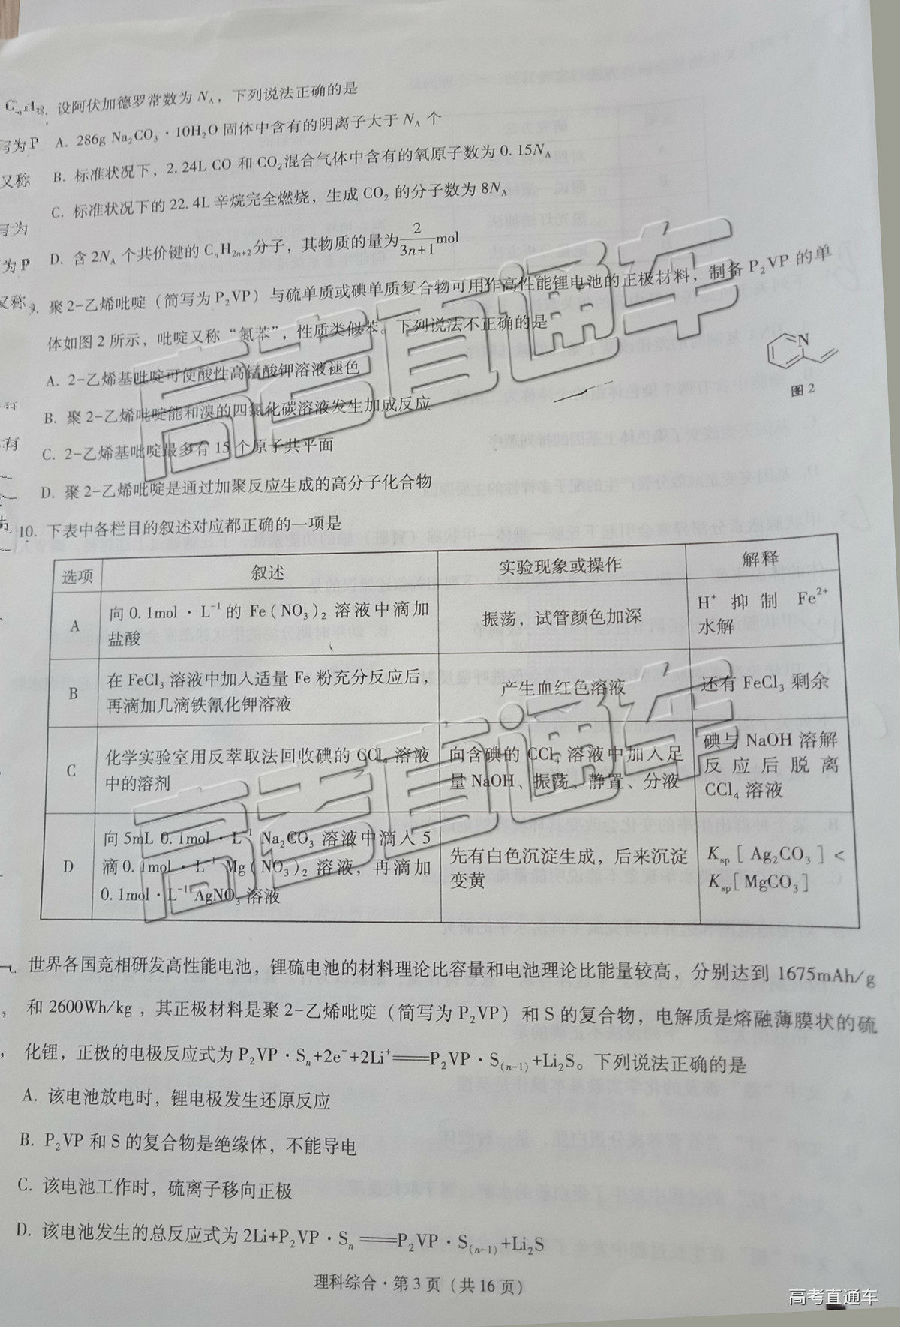 8. 设阿伏加德罗常数为 N_A，下列说法正确的是
A. 286g Na₂CO₃・10H₂O 固体中含有的阴离子大于 N_A 个
B. 标准状况下，2.24L CO 和 CO₂ 混合气体中含有的氧原子数为 0.15N_A
C. 标准状况下的 22.4L 辛烷完全燃烧，生成 CO₂ 的分子数为 8N_A
D. 含 2N_A 个共价键的 CₙH₂ₙ₊₂ 分子，其物质的量为 2/(3n+1) mol
9. 聚 2-乙烯吡啶（简写为 P₂VP）与硫单质或碘单质复合物可用作高性能锂电池的正极材料，制备 P₂VP 的单
体如图 2 所示，吡啶又称“氮苯”，性质类似苯。下列说法不正确的是
A. 2-乙烯基吡啶可使酸性高锰酸钾溶液褪色
B. 聚 2-乙烯吡啶能和溴的四氯化碳溶液发生加成反应
C. 2-乙烯基吡啶最多有 15 个原子共平面
D. 聚 2-乙烯吡啶是通过加聚反应生成的高分子化合物
N
图 2
10. 下表中各栏目的叙述对应都正确的一项是
选项 叙述 实验现象或操作 解释
A 向 0.1mol・L⁻¹ 的 Fe(NO₃)₂ 溶液中滴加
盐酸
振荡，试管颜色加深
H⁺ 抑制 Fe²⁺
水解
B 在 FeCl₃ 溶液中加入适量 Fe 粉充分反应后，
再滴加几滴铁氰化钾溶液
产生血红色溶液
还有 FeCl₃ 剩余
C 化学实验室用反萃取法回收碘的 CCl₄ 溶液
中的溶剂
向含碘的 CCl₄ 溶液中加入足
量 NaOH、振荡、静置、分液
碘与 NaOH 溶解
反应后脱离
CCl₄ 溶液
D 向 5mL 0.1mol・L⁻¹ Na₂CO₃ 溶液中滴入 5
滴 0.1mol・L⁻¹ Mg(NO₃)₂ 溶液，再滴加
0.1mol・L⁻¹ AgNO₃ 溶液
先有白色沉淀生成，后来沉淀
变黄
Ksp[Ag₂CO₃]<
Ksp[MgCO₃]
世界各国竞相研发高性能电池，锂硫电池的材料理论比容量和电池理论比能量较高，分别达到 1675mAh/g
和 2600Wh/kg，其正极材料是聚 2-乙烯吡啶（简写为 P₂VP）和 S 的复合物，电解质是熔融薄膜状的硫
化锂，正极的电极反应式为 P₂VP・Sₙ+2e⁻+2Li⁺══P₂VP・S₍ₙ₋₁₎+Li₂S。下列说法正确的是
A. 该电池放电时，锂电极发生还原反应
B. P₂VP 和 S 的复合物是绝缘体，不能导电
C. 该电池工作时，硫离子移向正极
D. 该电池发生的总反应式为 2Li+P₂VP・Sₙ══P₂VP・S₍ₙ₋₁₎+Li₂S
理科综合・第 3 页（共 16 页）
高考直通车
高考直通车
高考直通车